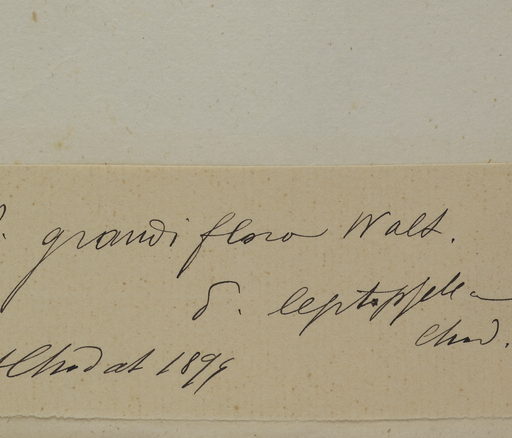 P. grandiflora Walt.
δ. leptophylla
Chod.
Chodat 1899